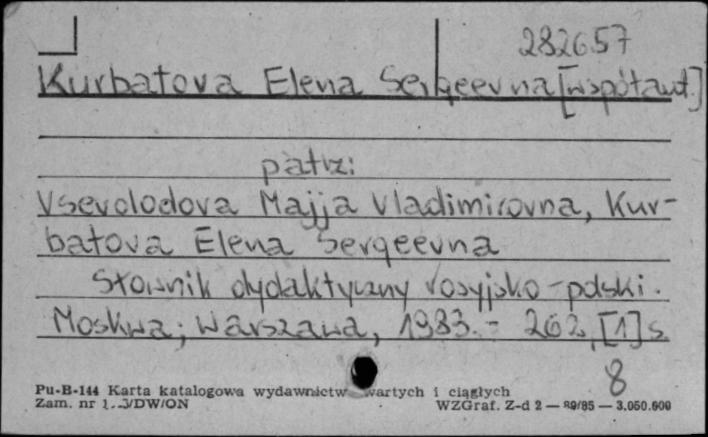 282657
Kurbatova Elena Sergeevna [współaut.]
patrz:
Vsevolodova Majja Vladimirovna, Kur-
batova Elena Sergeevna
Słownik dydaktyczny rosyjsko-polski.
Moskwa; Warszawa, 1983. - 262, [1] s.
8
Pu-B-144 Karta katalogowa wydawnictw zwartych i ciągłych
Zam. nr /DW/ON WZGraf. Z-d 2 — 89/85 — 3.050.000